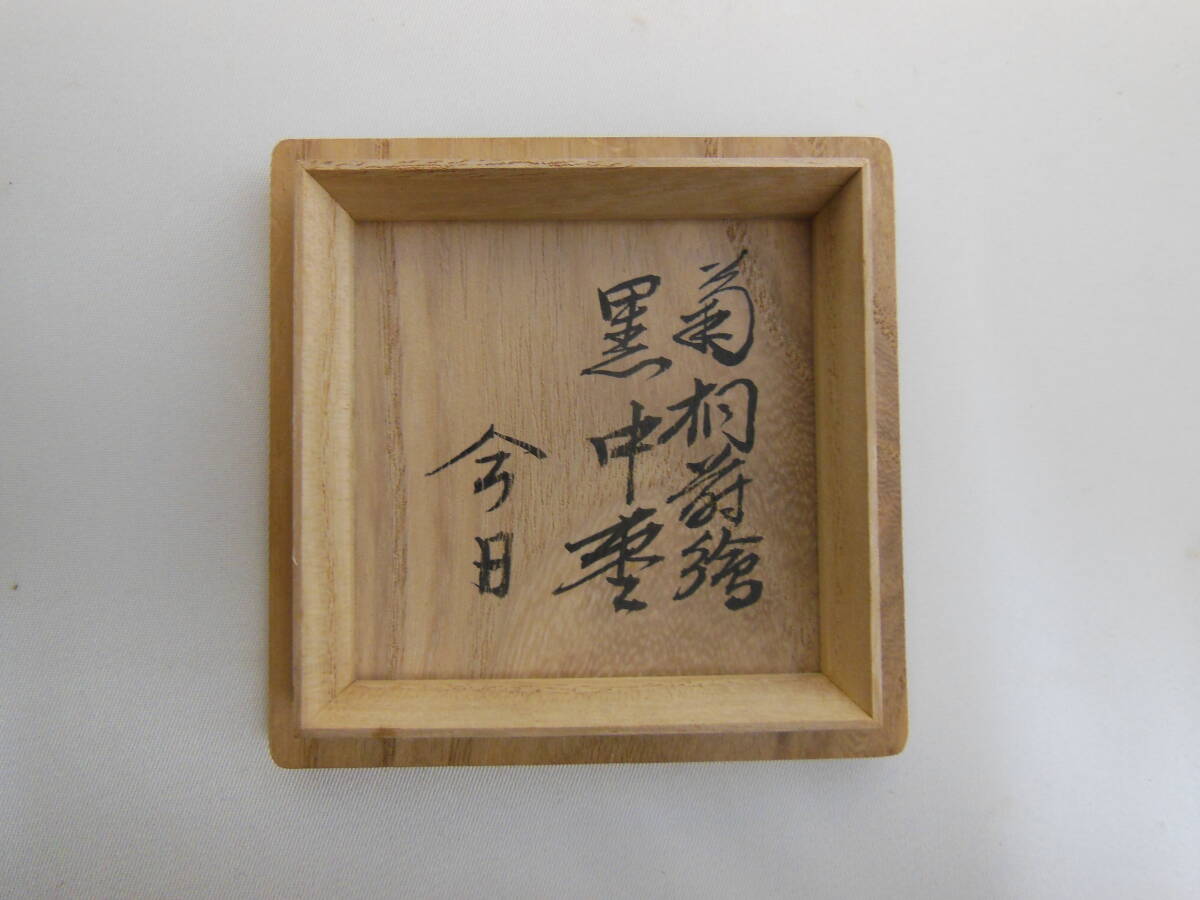 菊桐蒔繪
黒中棗
今日